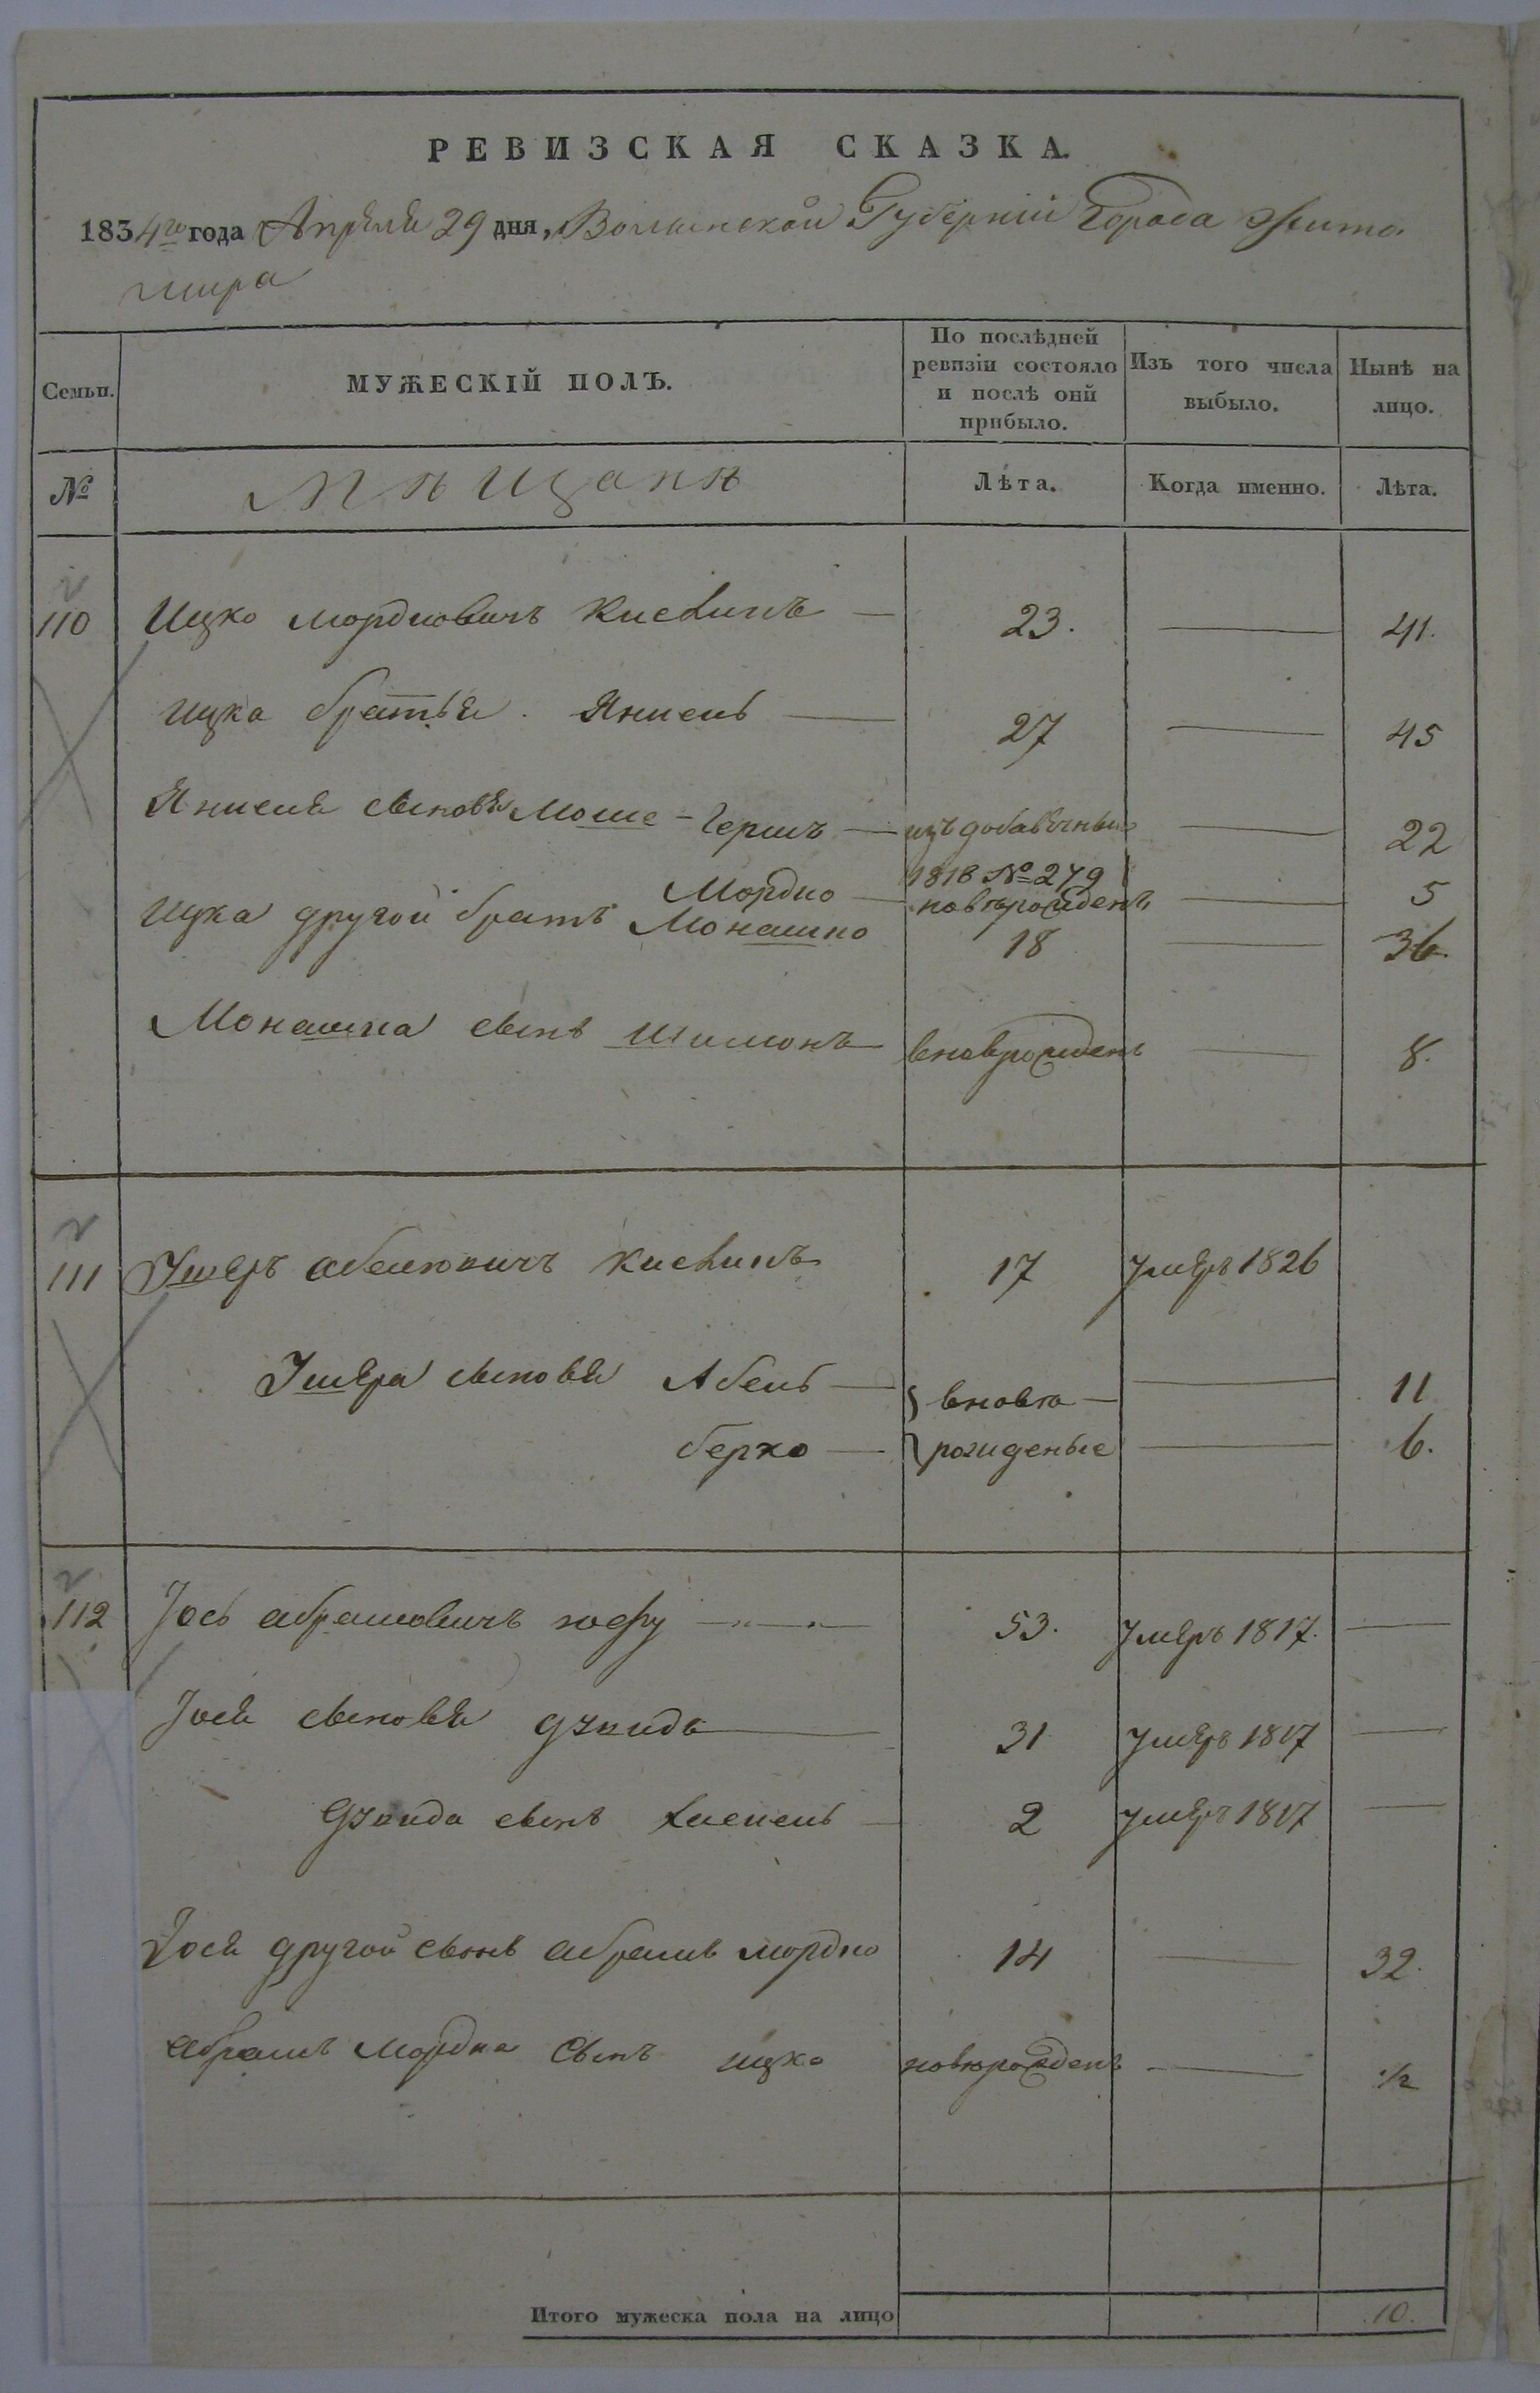 РЕВИЗСКАЯ СКАЗКА.
1834го года Апреля 29 дня, Волынской Губернии Города Жито
мира
Семьи.
МУЖЕСКІЙ ПОЛЪ.
По послѣдней
ревизіи состояло
и послѣ оній
прибыло.
Изъ того числа
выбыло.
Нынѣ на
лицо.
№
Мѣщанѣ
Лѣта.
Когда именно.
Лѣта.
110 Ицко мордковичъ Киевипъ — 23. — 41.
ицка братья. Янкель — 27 — 45
Янкеля сыновья Моше-Гершъ — изъ добавочныхъ — 22
1818 № 279
Мордко — новорожденъ — 5
ицка другой братъ Монашко 18 — 36.
Монашка сынъ Шимонъ вновърожденъ — 8.
111 Ушеръ абелювичъ 17 умеръ 1826
Ушера сыновья Абель — вновъ — 11
берко — рожденые — 6.
112 Іось абрамовичъ 53. умеръ 1817. —
Іося сыновья — 31 умеръ 1817 —
сынъ 2 умеръ 1817 —
Іося другой сынъ абрамъ мордко 14 — 32.
абрамъ мордка сынъ ицко новорожденъ — 1/2
Итого мужеска пола на лицо 10.